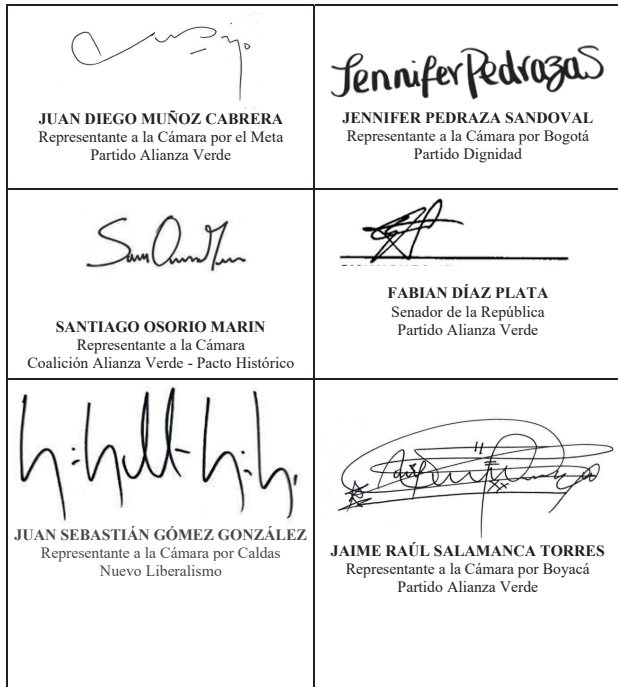 JUAN DIEGO MUÑOZ CABRERA
Representante a la Cámara por el Meta
Partido Alianza Verde
Jennifer Pedraza S
JENNIFER PEDRAZA SANDOVAL
Representante a la Cámara por Bogotá
Partido Dignidad
SANTIAGO OSORIO MARIN
Representante a la Cámara
Coalición Alianza Verde - Pacto Histórico
FABIAN DÍAZ PLATA
Senador de la República
Partido Alianza Verde
JUAN SEBASTIÁN GÓMEZ GONZÁLEZ
Representante a la Cámara por Caldas
Nuevo Liberalismo
JAIME RAÚL SALAMANCA TORRES
Representante a la Cámara por Boyacá
Partido Alianza Verde